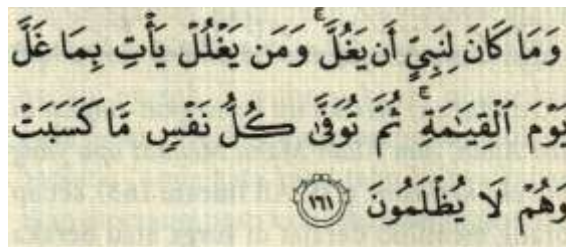 وَمَا كَانَ لِنَبِيٍّ أَن يَغُلَّ ۚ وَمَن يَغْلُلْ يَأْتِ بِمَا غَلَّ
يَوْمَ ٱلْقِيَٰمَةِ ۚ ثُمَّ تُوَفَّىٰ كُلُّ نَفْسٍ مَّا كَسَبَتْ
وَهُمْ لَا يُظْلَمُونَ ١٦١